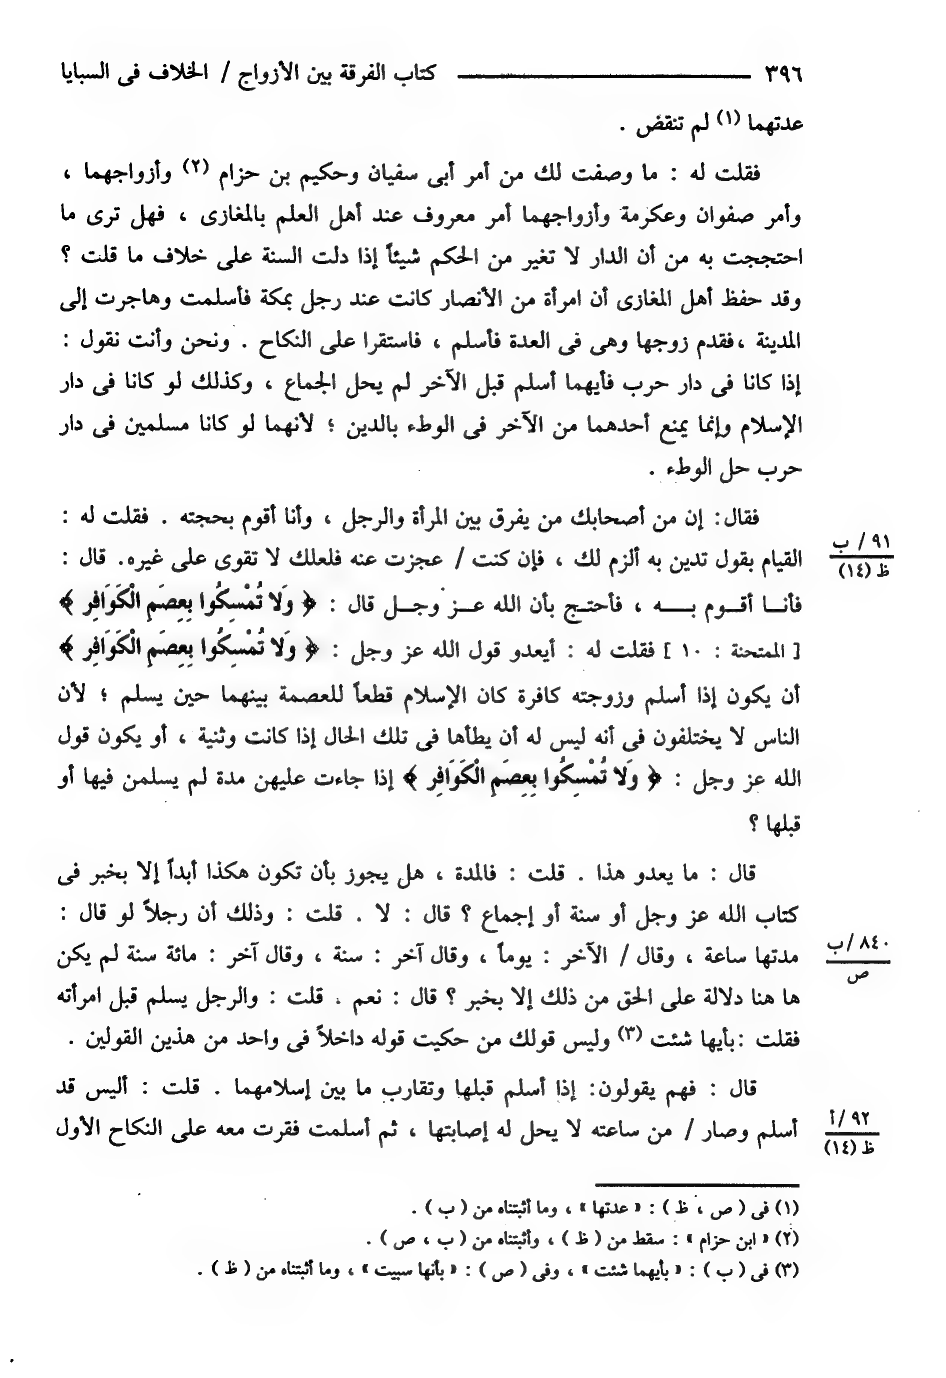 ٣٩٦ كتاب الفرقة بين الأزواج / الخلاف فى السبايا
عدتهما (١) لم تنقض .
فقلت له : ما وصفت لك من أمر أبى سفيان وحكيم بن حزام (٢) وأزواجهما ،
وأمر صفوان وعكرمة وأزواجهما أمر معروف عند أهل العلم بالمغازى ، فهل ترى ما
احتججت به من أن الدار لا تغير من الحكم شيئاً إذا دلت السنة على خلاف ما قلت ؟
وقد حفظ أهل المغازى أن امرأة من الأنصار كانت عند رجل بمكة فأسلمت وهاجرت إلى
المدينة ، فقدم زوجها وهى فى العدة فأسلم ، فاستقرا على النكاح . ونحن وأنت نقول :
إذا كانا فى دار حرب فأيهما أسلم قبل الآخر لم يحل الجماع ، وكذلك لو كانا فى دار
الإسلام وإنما يمنع أحدهما من الآخر فى الوطء بالدين ؛ لأنهما لو كانا مسلمين فى دار
حرب حل الوطء .
فقال : إن من أصحابك من يفرق بين المرأة والرجل ، وأنا أقوم بحجته . فقلت له :
القيام بقول تدين به ألزم لك ، فإن كنت / عجزت عنه فلعلك لا تقوى على غيره. قال :
٩١ / ب
ظ (١٤)
فأنــا أقــوم بــــه ، فأحتـج بأن الله عــز وجــل قال : ﴿ وَلا تُمْسِكُوا بِعِصَمِ الْكَوَافِرِ ﴾
[ الممتحنة : ١٠ ] فقلت له : أيعدو قول الله عز وجل : ﴿ وَلا تُمْسِكُوا بِعِصَمِ الْكَوَافِرِ ﴾
أن يكون إذا أسلم وزوجته كافرة كان الإسلام قطعاً للعصمة بينهما حين يسلم ؛ لأن
الناس لا يختلفون فى أنه ليس له أن يطأها فى تلك الحال إذا كانت وثنية ، أو يكون قول
الله عز وجل : ﴿ وَلا تُمْسِكُوا بِعِصَمِ الْكَوَافِرِ ﴾ إذا جاءت عليهن مدة لم يسلمن فيها أو
قبلها ؟
قال : ما يعدو هذا . قلت : فالمدة ، هل يجوز بأن تكون هكذا أبداً إلا بخبر فى
كتاب الله عز وجل أو سنة أو إجماع ؟ قال : لا . قلت : وذلك أن رجلاً لو قال :
مدتها ساعة ، وقال / الآخر : يوماً ، وقال آخر : سنة ، وقال آخر : مائة سنة لم يكن
٨٤٠ /ب
ص
ها هنا دلالة على الحق من ذلك إلا بخبر ؟ قال : نعم . قلت : والرجل يسلم قبل امرأته
فقلت :بأيها شئت (٣) وليس قولك من حكيت قوله داخلاً فى واحد من هذين القولين .
قال : فهم يقولون: إذا أسلم قبلها وتقارب ما بين إسلامهما . قلت : أليس قد
أسلم وصار / من ساعته لا يحل له إصابتها ، ثم أسلمت فقرت معه على النكاح الأول
٩٢ /أ
ظ (١٤)
(١) فى ( ص ، ظ ) : « عدتها » ، وما أثبتناه من ( ب ) .
(٢) « ابن حزام » : سقط من ( ظ ) ، وأثبتناه من ( ب ، ص ) .
(٣) فى ( ب ) : « بأيهما شئت » ، وفى ( ص ) : « بأنها سبيت » ، وما أثبتناه من ( ظ ) .